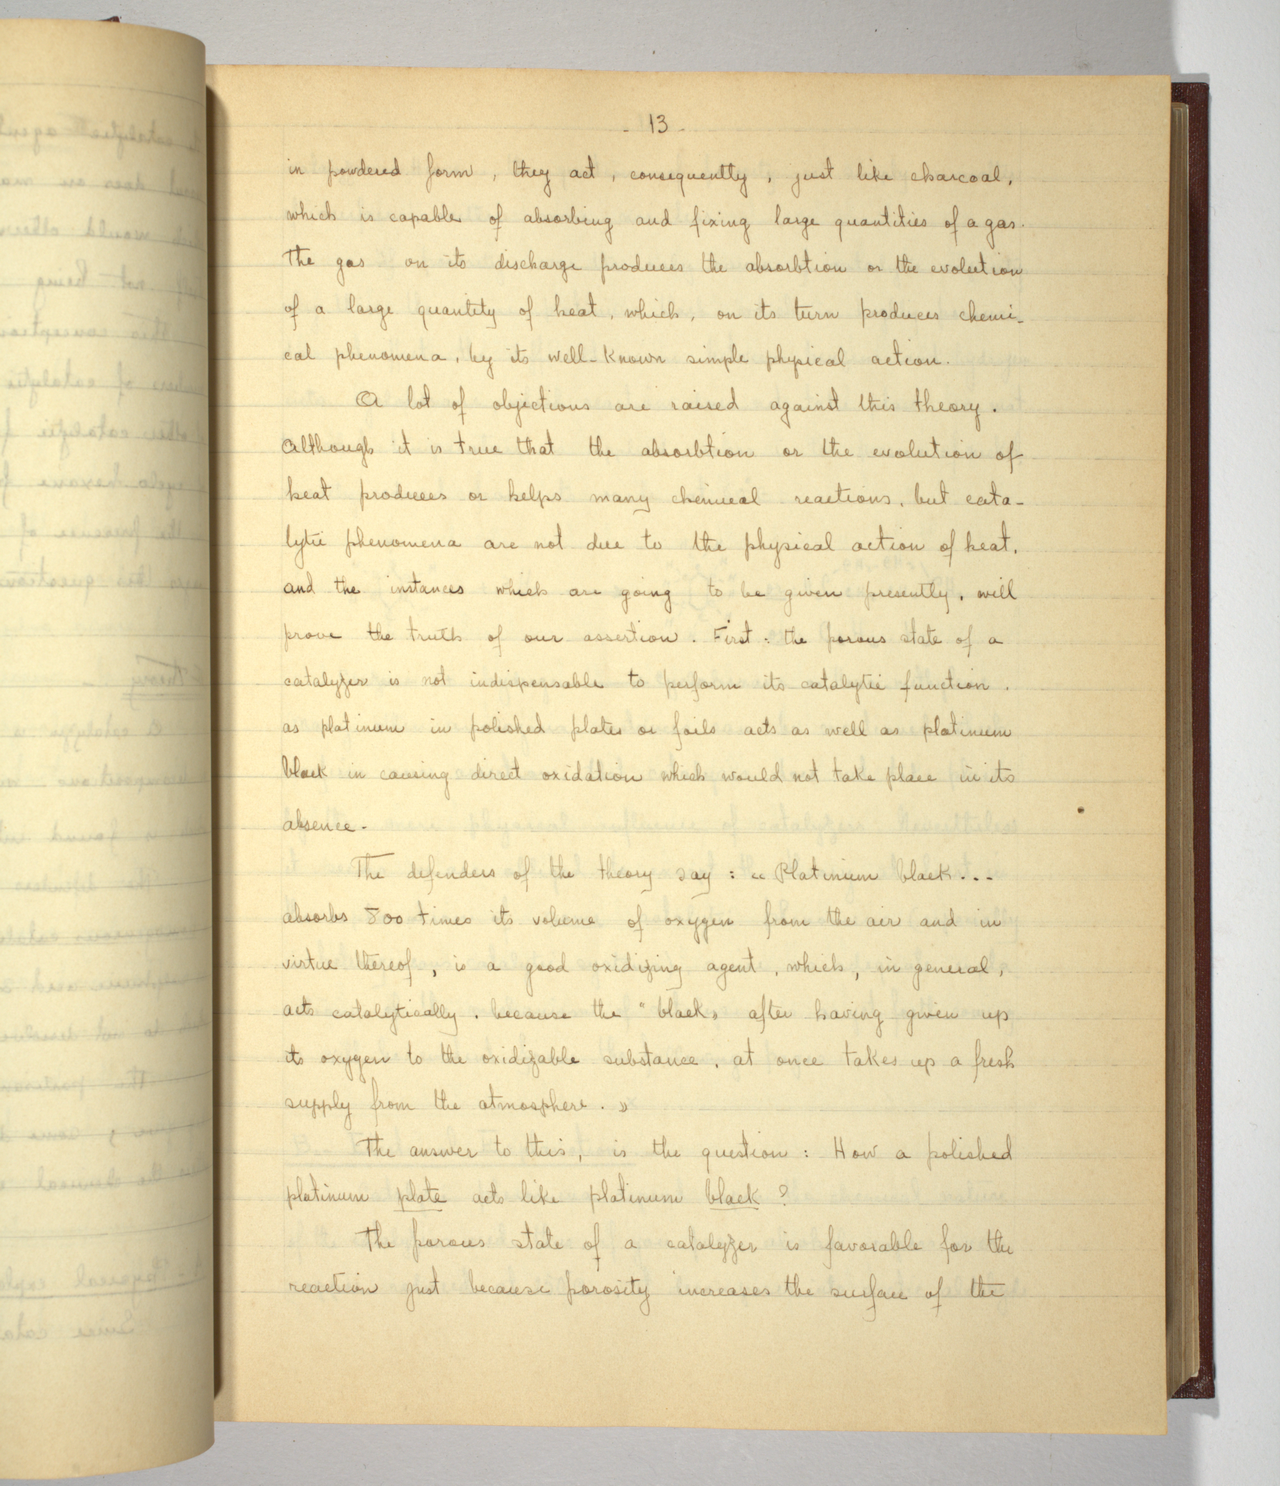 - 13 -
in powdered form, they act, consequently, just like charcoal,
which is capable of absorbing and fixing large quantities of a gas.
The gas on its discharge produces the absorbtion or the evolution
of a large quantity of heat, which, on its turn produces chemi-
cal phenomena, by its well-known simple physical action.
A lot of objections are raised against this theory.
Although it is true that the absorbtion or the evolution of
heat produces or helps many chemical reactions, but cata-
lytic phenomena are not due to the physical action of heat,
and the instances which are going to be given presently, will
prove the truth of our assertion. First: the porous state of a
catalyzer is not indispensable to perform its catalytic function.
as platinum in polished plates or foils acts as well as platinum
black in causing direct oxidation which would not take place in its
absence.
The defenders of the theory say: « Platinium black...
absorbs 800 times its volume of oxygen from the air and in
virtue thereof, is a good oxidizing agent, which, in general,
acts catalytically, because the "black" after having given up
its oxygen to the oxidizable substance, at once takes up a fresh
supply from the atmosphere. »
The answer to this, is the question: How a polished
platinum plate acts like platinum black?
The porous state of a catalyzer is favorable for the
reaction just because porosity increases the surface of the